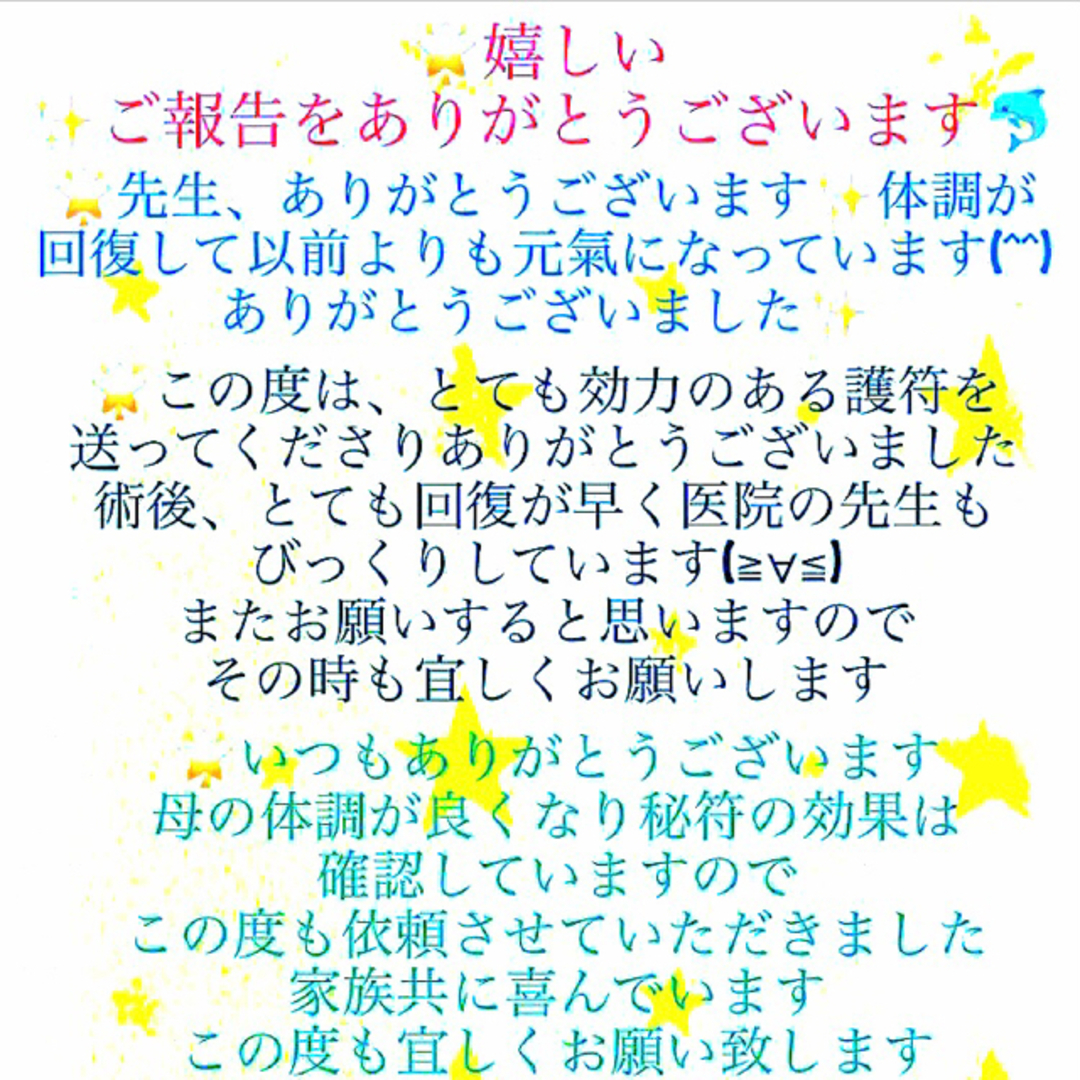 🌟嬉しい
✨ご報告をありがとうございます🐬
🌟先生、ありがとうございます✨体調が
回復して以前よりも元氣になっています(^^)
ありがとうございました✨
🌟この度は、とても効力のある護符を
送ってくださりありがとうございました
術後、とても回復が早く医院の先生も
びっくりしています(≧∀≦)
またお願いすると思いますので
その時も宜しくお願いします
🌟いつもありがとうございます
母の体調が良くなり秘符の効果は
確認していますので
この度も依頼させていただきました
家族共に喜んでいます
この度も宜しくお願い致します